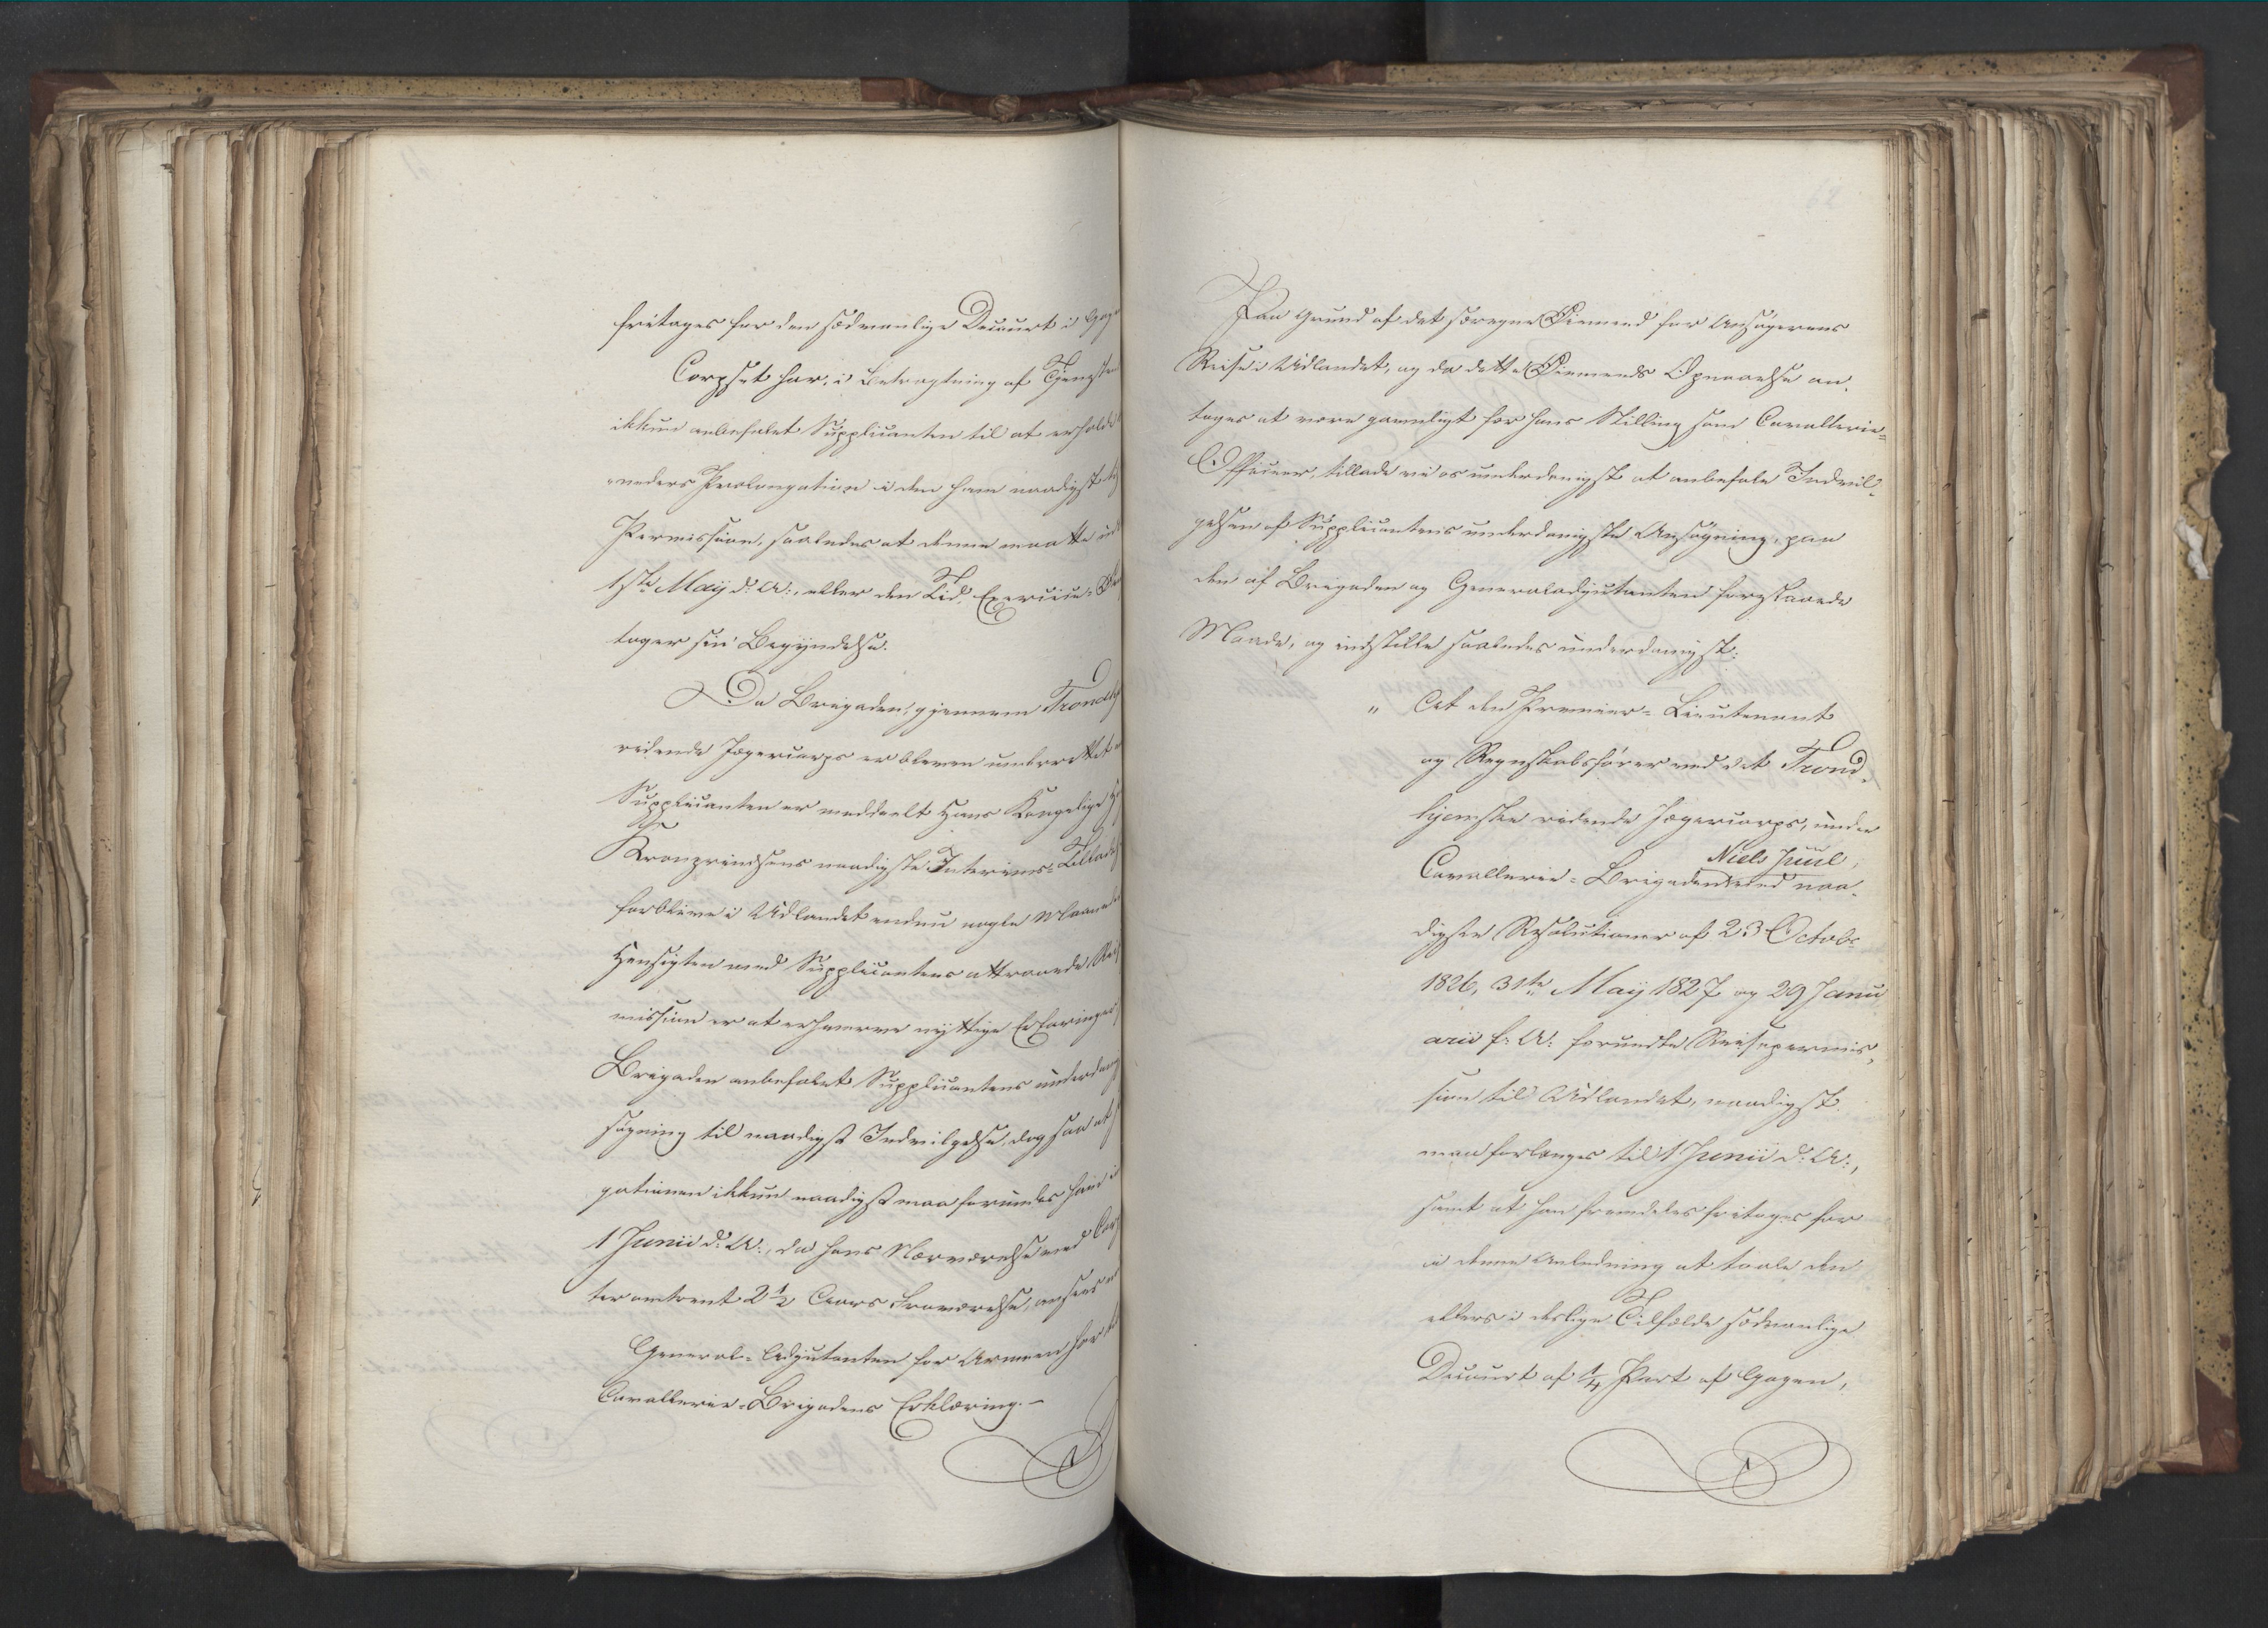 fritages for den sædvanlige Decourt i Gag
Corpset har, i Betragtning af Tjenesten
ikkun anbefalet Supplicanten til at erholde
Prolongation i den ham naadigst
Permission, saaledes at denne maatte
1ste Maÿ d: A:, eller den Tid, Exercice-
tager sin Begÿndelse.
Da Brigaden, gjennem Trondh
ridende Jægercorps er bleven underrettet
Supplicanten er meddeelt Hans Kongelige
Kronprindsens naadigste Interims-Tillad
forblive i Udlandet endnu nogle Maane
Hensigten med Supplicantens attraaede
mission er at erhverve nÿttige Erfaringer
Brigaden anbefalet Supplicantens underdan
søgning til naadigst Indvilgelse, dog saa at
gationen ikkun naadigst maa forundes ham
1 Junii d: A:, da hans Nærværelse ved Corp
ter omtrent 2 1/2 Aars Fraværelse, ansees
General-Adjutanten for Armeen har
Cavallerie-Brigadens Erklæring.-
62
Paa Grund af det foregne Øiemed for Ansøgerens
Reise i Udlandet, og da dette Øiemeds Opnaaelse an-
tages at være gavnligt for hans Stilling som Cavallerie-
Officeer, tillade vi os underdanigst at anbefale Indvil-
gelsen af Supplicantens underdanigste Ansøgning, paa
den af Brigaden og Generaladjutanten foreslaaede
Maade, og indstille saaledes underdanigst:
" At den Premier-Lieutenant
og Regnskabsfører ved det Trond-
hjemske ridende Jægercorps, under
Niels Juul,
Cavallerie-Brigaden ved naa-
digste Resolutioner af 23 Octobr
1826, 31te Maÿ 1827 og 29 Janu
arii f: A: forundte Reisepermis-
sion til Udlandet, naadigst
maa forlænges til 1 Junii d: A:,
samt at han fremdeles fritages for
i denne Anledning at taale den
ellers i deslige Tilfælde sædvanlige
Decourt af 1/4 Part af Gagen,